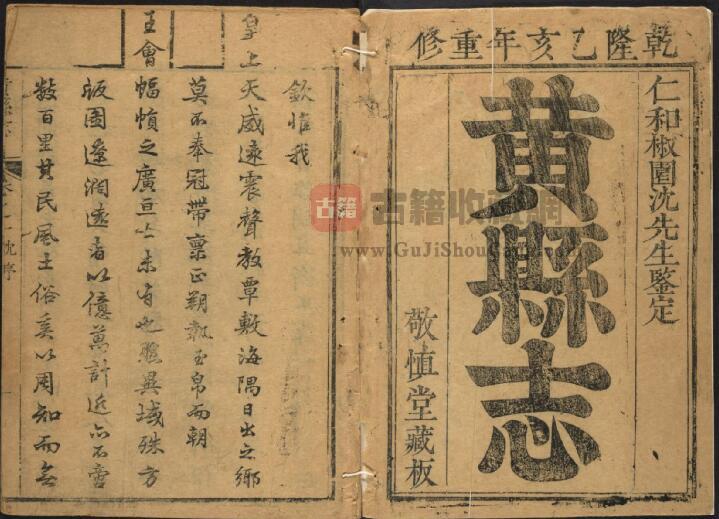 乾隆乙亥年重修
仁和椒園沈先生鑒定
黃縣志
敬慎堂藏板
欽惟我
皇上天威遠震聲教覃敷海隅日出之鄉
莫不奉冠帶稟正朔執玉帛而朝
王會幅幀之廣亘古未有也雖異域殊方
版圖遼濶遠者以億萬計近亦不啻
數百里其民風土俗奚以周知而無
沈序
古籍
古籍收藏網
www.GuJiShouCang.com